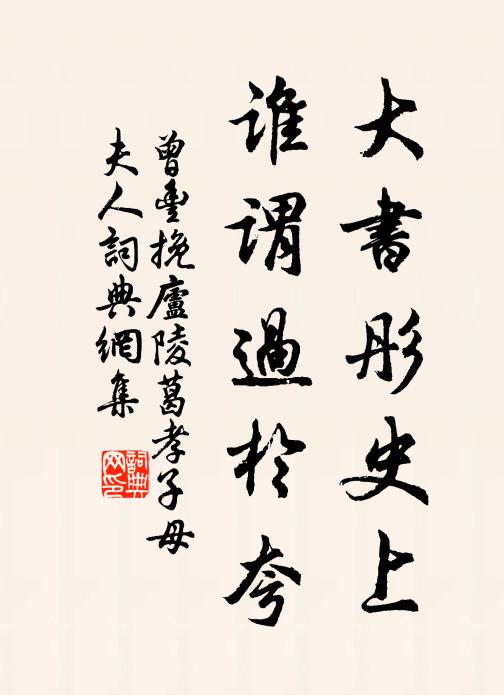 大書彤史上
誰謂過於夸
曾豐挽廬陵葛孝子母
夫人詞典網集
詞典
网印